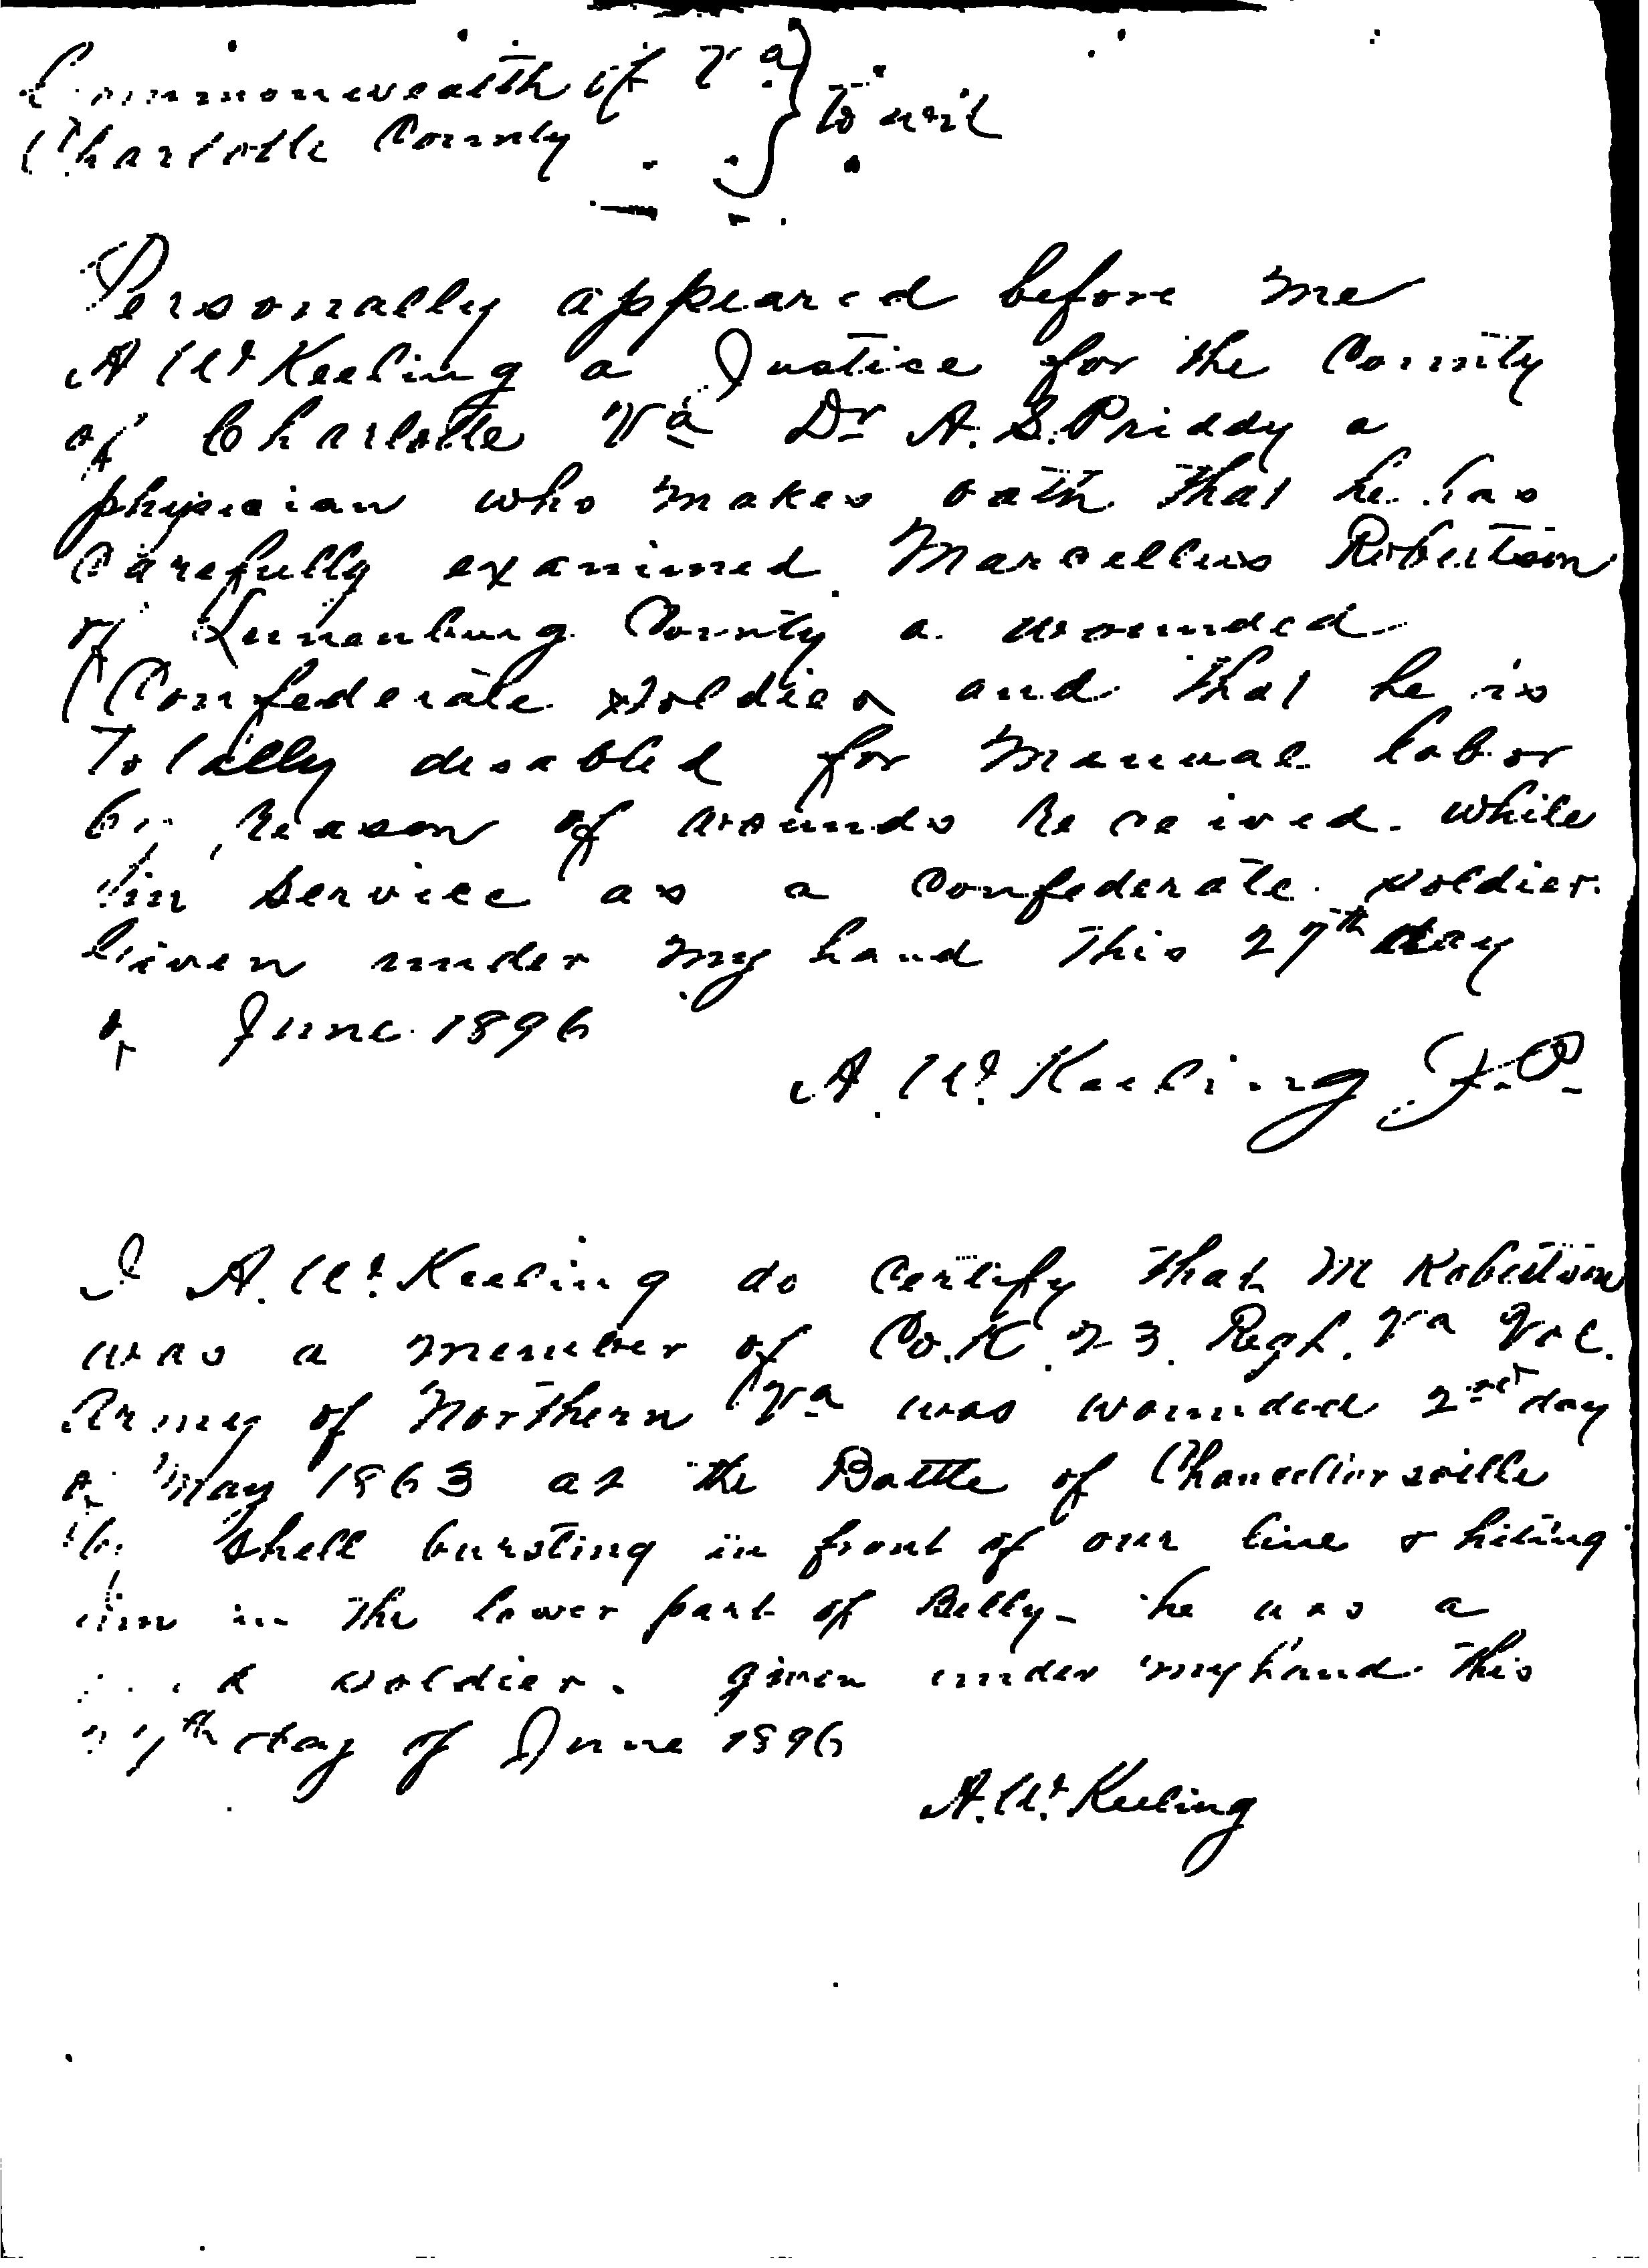 Commonwealth of Va } To wit
Charlotte County
Personally appeared before me
A W Keeling a Justice for the County
of Charlotte Va Dr A. S. Priddy a
physician who makes oath that he has
Carefully examined Marcellus Robertson
of Lunenburg County a wounded
Confederate soldier and that he is
Totally disabled for manual labor
by reason of wounds Received while
in service as a Confederate soldier.
Given under my hand This 27th day
of June 1896
A. W. Keeling J.P.
I A. W. Keeling do Certify that M Robertson
was a member of Co. K. 23. Regt. Va Vol.
Army of Northern Va was wounded 2nd day
of May 1863 at the Battle of Chancellorsville
by Shell bursting in front of our line & hiting
him in the lower part of Belly - he was a
soldier. given under my hand This
27th day of June 1896
A. W. Keeling